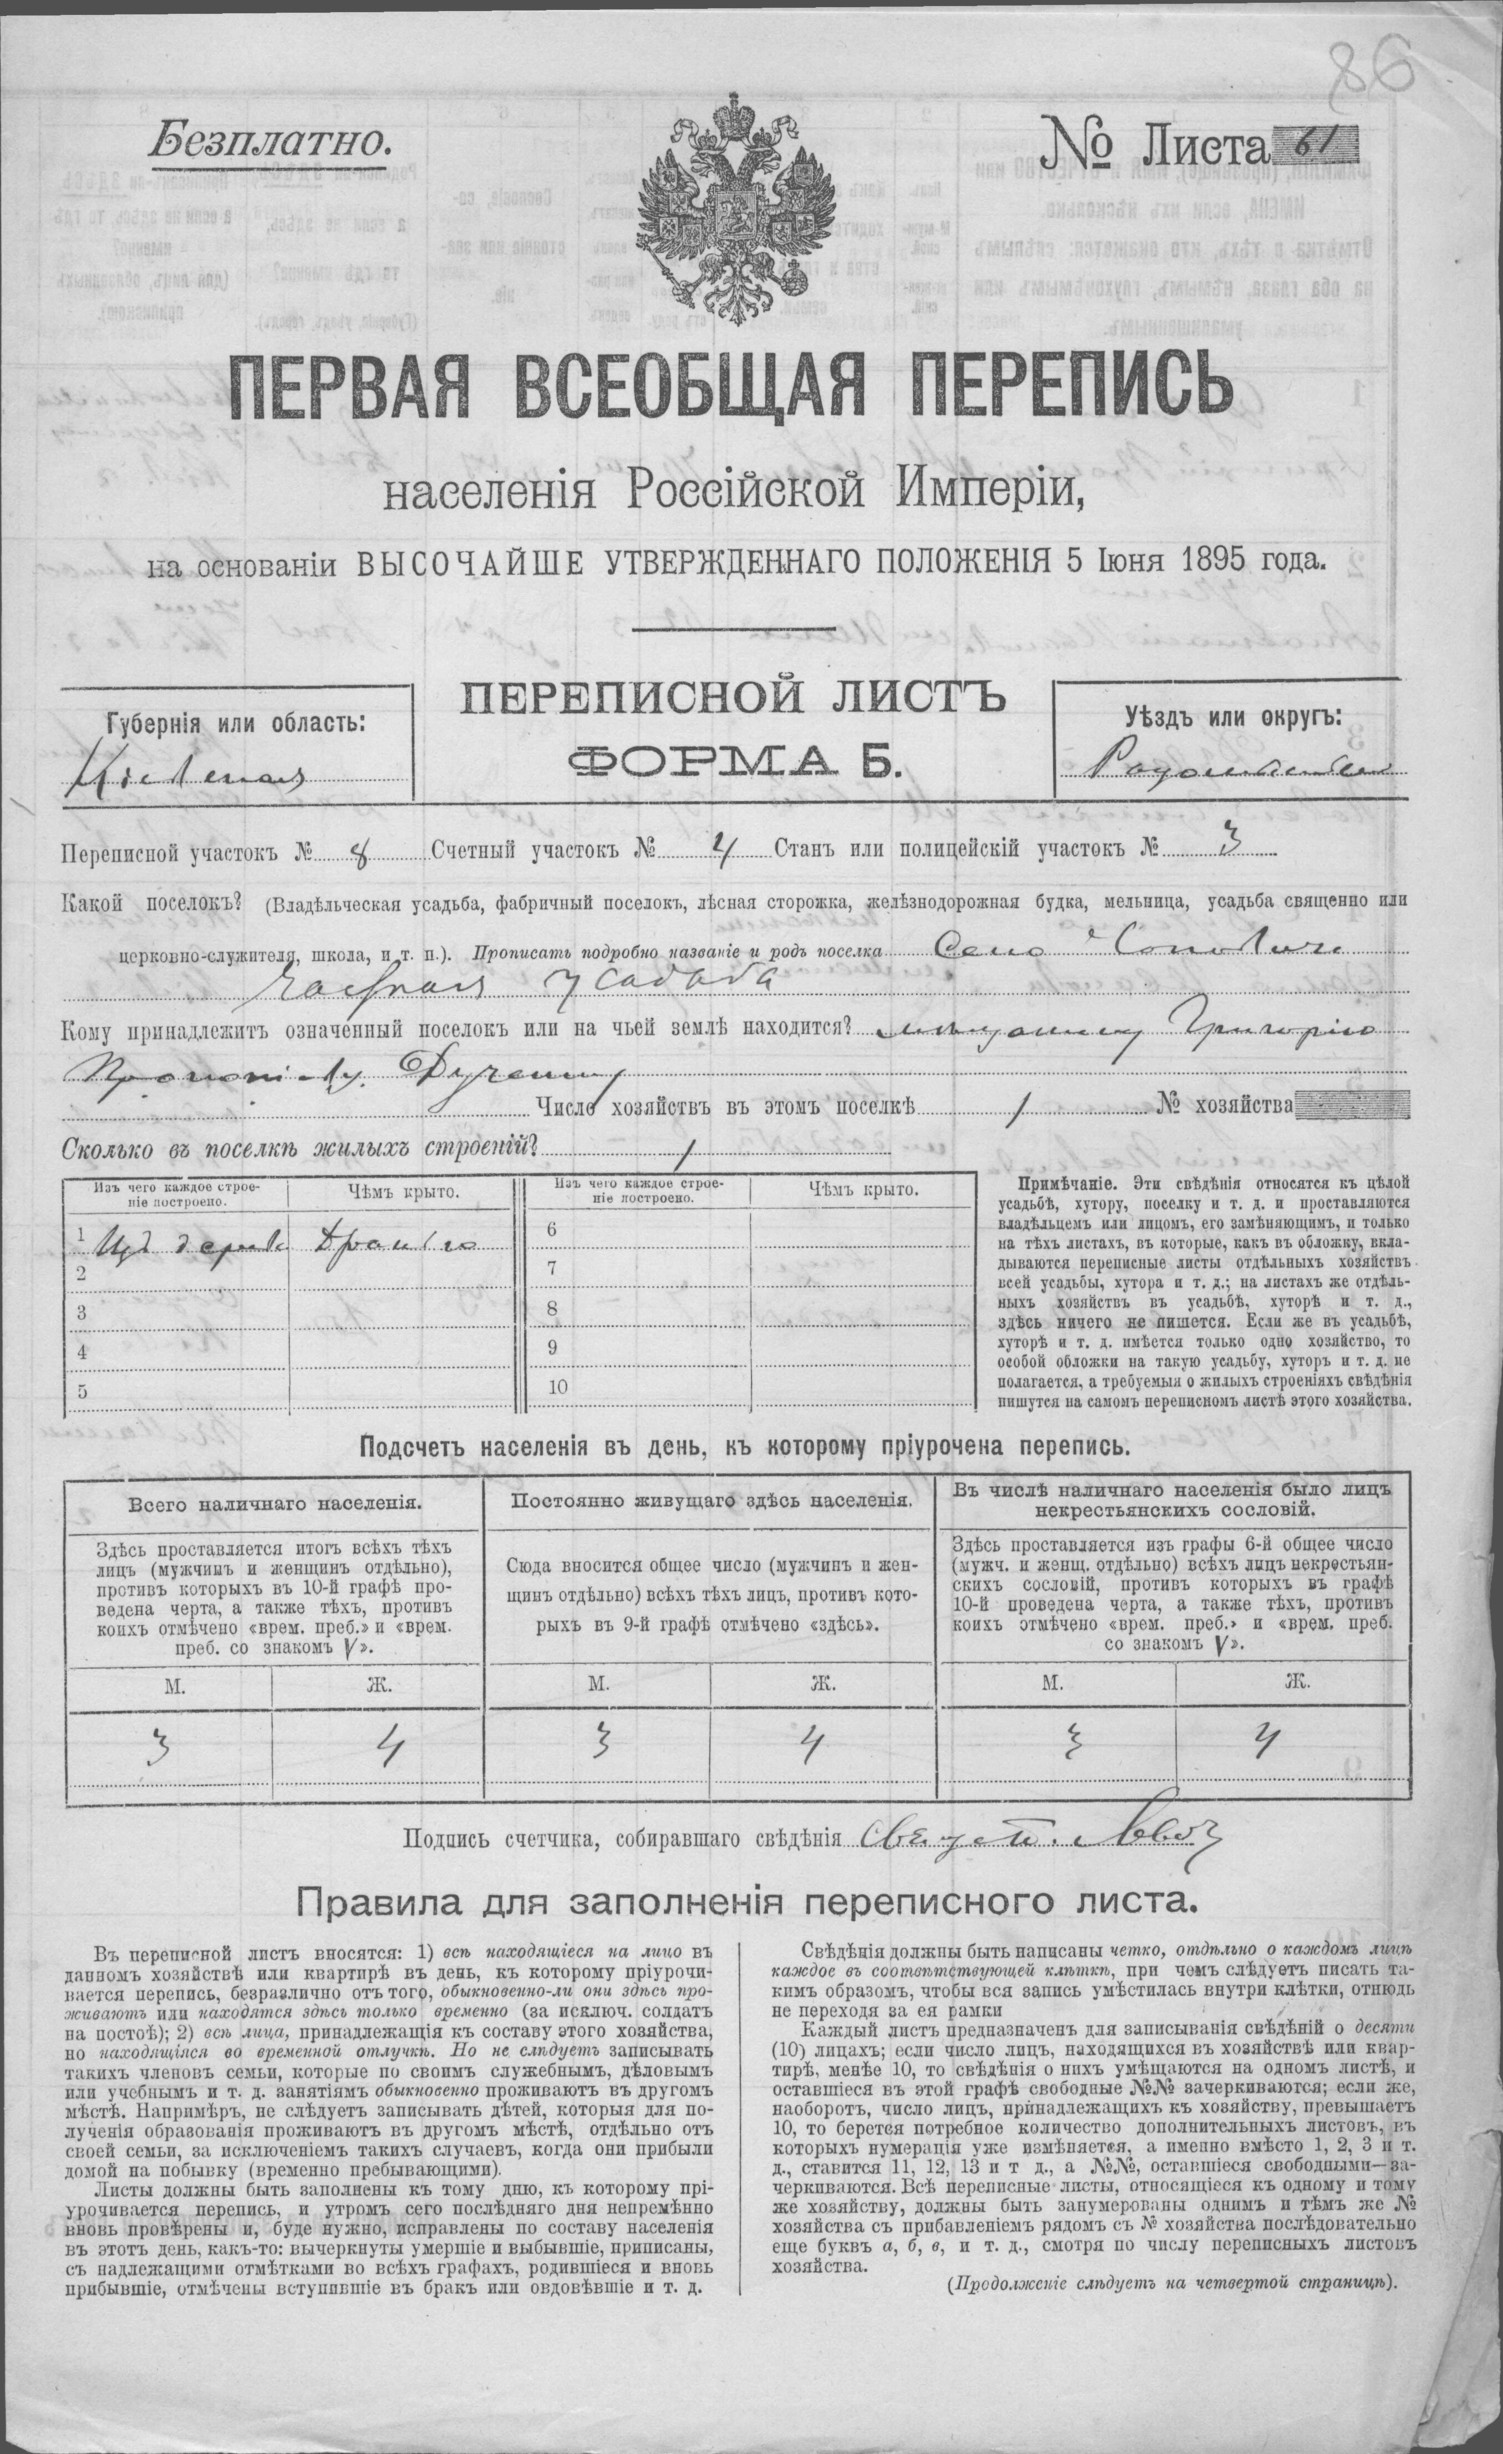 86
Безплатно.
№ Листа 61
ПЕРВАЯ ВСЕОБЩАЯ ПЕРЕПИСЬ
населенія Россійской Имперіи,
на основаніи ВЫСОЧАЙШЕ УТВЕРЖДЕННАГО ПОЛОЖЕНІЯ 5 Іюня 1895 года.
ПЕРЕПИСНОЙ ЛИСТЪ
ФОРМА Б.
Губернія или область:
Кіевская
Уѣздъ или округъ:
Радомысльскій
Переписной участокъ № 8 Счетный участокъ № 4 Станъ или полицейскій участокъ № 3
Какой поселокъ? (Владѣльческая усадьба, фабричный поселокъ, лѣсная сторожка, желѣзнодорожная будка, мельница, усадьба священно или
церковно-служителя, школа, и т. п.). Прописать подробно названіе и родъ поселка Село
усадьба
Кому принадлежитъ означенный поселокъ или на чьей землѣ находится? мѣщанину Григорію
Прокопіеву
Число хозяйствъ въ этомъ поселкѣ 1 № хозяйства
Сколько въ поселкѣ жилыхъ строеній? 1
Изъ чего каждое строе-
ніе построено.
Чѣмъ крыто.
Изъ чего каждое строе-
ніе построено.
Чѣмъ крыто.
1 Изъ дерева Дранью
2
3
4
5
6
7
8
9
10
Примѣчаніе. Эти свѣдѣнія относятся къ цѣлой
усадьбѣ, хутору, поселку и т. д. и проставляются
владѣльцемъ или лицомъ, его замѣняющимъ, и только
на тѣхъ листахъ, въ которые, какъ въ обложку, вкла-
дываются переписные листы отдѣльныхъ хозяйствъ
всей усадьбы, хутора и т. д.; на листахъ же отдѣль-
ныхъ хозяйствъ въ усадьбѣ, хуторѣ и т. д.,
здѣсь ничего не пишется. Если же въ усадьбѣ,
хуторѣ и т. д. имѣется только одно хозяйство, то
особой обложки на такую усадьбу, хуторъ и т. д. не
полагается, а требуемыя о жилыхъ строеніяхъ свѣдѣнія
пишутся на самомъ переписномъ листѣ этого хозяйства.
Подсчетъ населенія въ день, къ которому пріурочена перепись.
Всего наличнаго населенія.
Здѣсь проставляется итогъ всѣхъ тѣхъ
лицъ (мужчинъ и женщинъ отдѣльно),
противъ которыхъ въ 10-й графѣ про-
ведена черта, а также тѣхъ, противъ
коихъ отмѣчено «врем. преб.» и «врем.
преб. со знакомъ V».
Постоянно живущаго здѣсь населенія.
Сюда вносится общее число (мужчинъ и жен-
щинъ отдѣльно) всѣхъ тѣхъ лицъ, противъ кото-
рыхъ въ 9-й графѣ отмѣчено «здѣсь».
Въ числѣ наличнаго населенія было лицъ
некрестьянскихъ сословій.
Здѣсь проставляется изъ графы 6-й общее число
(мужч. и женщ. отдѣльно) всѣхъ лицъ некрестьян-
скихъ сословій, противъ которыхъ въ графѣ
10-й проведена черта, а также тѣхъ, противъ
коихъ отмѣчено «врем. преб.» и «врем. преб.
со знакомъ V».
М. Ж. М. Ж. М. Ж.
3 4 3 4 3 4
Подпись счетчика, собиравшаго свѣдѣнія
Правила для заполненія переписного листа.
Въ переписной листъ вносятся: 1) всѣ находящіеся на лицо въ
данномъ хозяйствѣ или квартирѣ въ день, къ которому пріурочи-
вается перепись, безразлично отъ того, обыкновенно-ли они здѣсь про-
живаютъ или находятся здѣсь только временно (за исключ. солдатъ
на постоѣ); 2) всѣ лица, принадлежащія къ составу этого хозяйства,
но находящіяся во временной отлучкѣ. Но не слѣдуетъ записывать
такихъ членовъ семьи, которые по своимъ служебнымъ, дѣловымъ
или учебнымъ и т. д. занятіямъ обыкновенно проживаютъ въ другомъ
мѣстѣ. Напримѣръ, не слѣдуетъ записывать дѣтей, которыя для по-
лученія образованія проживаютъ въ другомъ мѣстѣ, отдѣльно отъ
своей семьи, за исключеніемъ такихъ случаевъ, когда они прибыли
домой на побывку (временно пребывающими).
Листы должны быть заполнены къ тому дню, къ которому прі-
урочивается перепись, и утромъ сего послѣдняго дня непремѣнно
вновь провѣрены и, буде нужно, исправлены по составу населенія
въ этотъ день, какъ-то: вычеркнуты умершіе и выбывшіе, приписаны,
съ надлежащими отмѣтками во всѣхъ графахъ, родившіеся и вновь
прибывшіе, отмѣчены вступившіе въ бракъ или овдовѣвшіе и т. д.
Свѣдѣнія должны быть написаны четко, отдѣльно о каждомъ лицѣ
каждое въ соотвѣтствующей клѣткѣ, при чемъ слѣдуетъ писать та-
кимъ образомъ, чтобы вся запись умѣстилась внутри клѣтки, отнюдь
не переходя за ея рамки
Каждый листъ предназначенъ для записыванія свѣдѣній о десяти
(10) лицахъ; если число лицъ, находящихся въ хозяйствѣ или квар-
тирѣ, менѣе 10, то свѣдѣнія о нихъ умѣщаются на одномъ листѣ, и
оставшіеся въ этой графѣ свободные №№ зачеркиваются; если же,
наоборотъ, число лицъ, принадлежащихъ къ хозяйству, превышаетъ
10, то берется потребное количество дополнительныхъ листовъ, въ
которыхъ нумерація уже измѣняется, а именно вмѣсто 1, 2, 3 и т.
д., ставится 11, 12, 13 и т д., а №№, оставшіеся свободными—за-
черкиваются. Всѣ переписные листы, относящіеся къ одному и тому
же хозяйству, должны быть занумерованы однимъ и тѣмъ же №
хозяйства съ прибавленіемъ рядомъ съ № хозяйства послѣдовательно
еще буквъ а, б, в, и т. д., смотря по числу переписныхъ листовъ
хозяйства.
(Продолженіе слѣдуетъ на четвертой страницѣ).